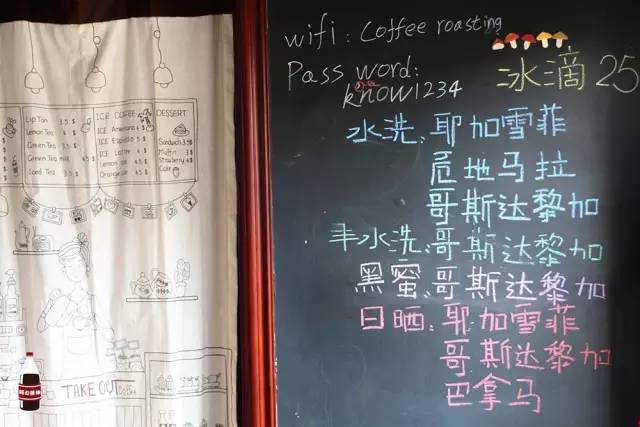 wifi: Coffee roasting
Pass word:
know1234
冰滴 25
水洗:耶加雪菲
危地马拉
哥斯达黎加
半水洗:哥斯达黎加
黑蜜:哥斯达黎加
日晒:耶加雪菲
哥斯达黎加
巴拿马
Lip Ton
Lemon Tea
Green Tea
Green Tea milk
Iced Tea
ICE COFFEE
ICE Americano
ICE Latte
DESSERT
Sandwich
Muffin
Strawberry
Cake
TAKE OUT
Coffee